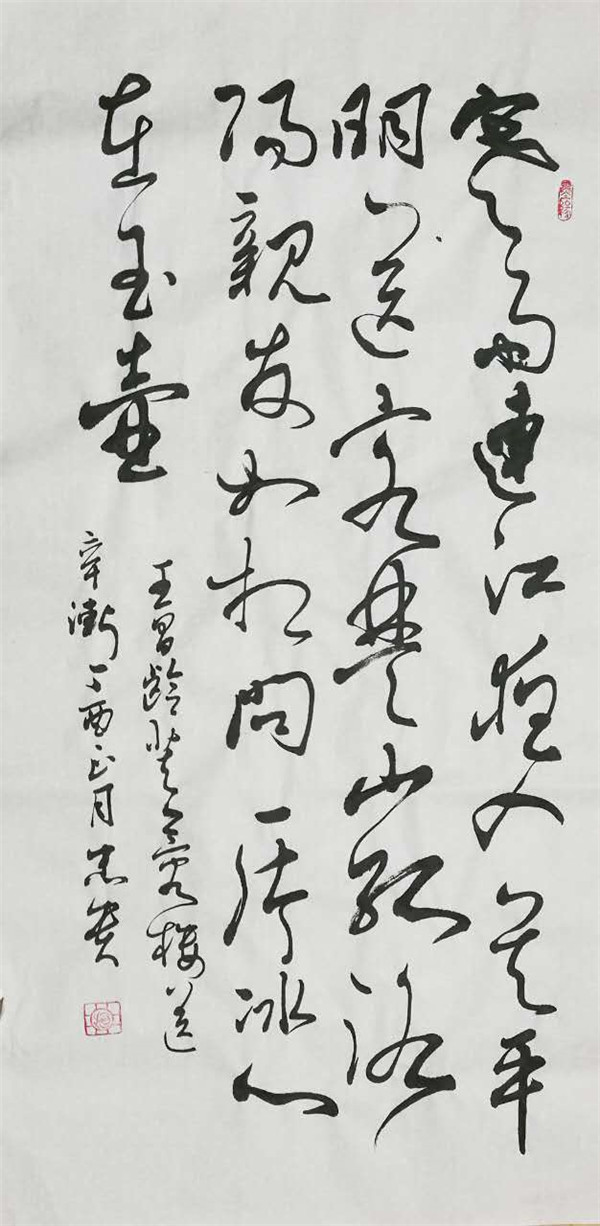 寒雨連江夜入吴平
明送客楚山孤洛
陽親友如相問一片冰心
在玉壺
王昌齡芙蓉樓送
辛漸丁酉正月